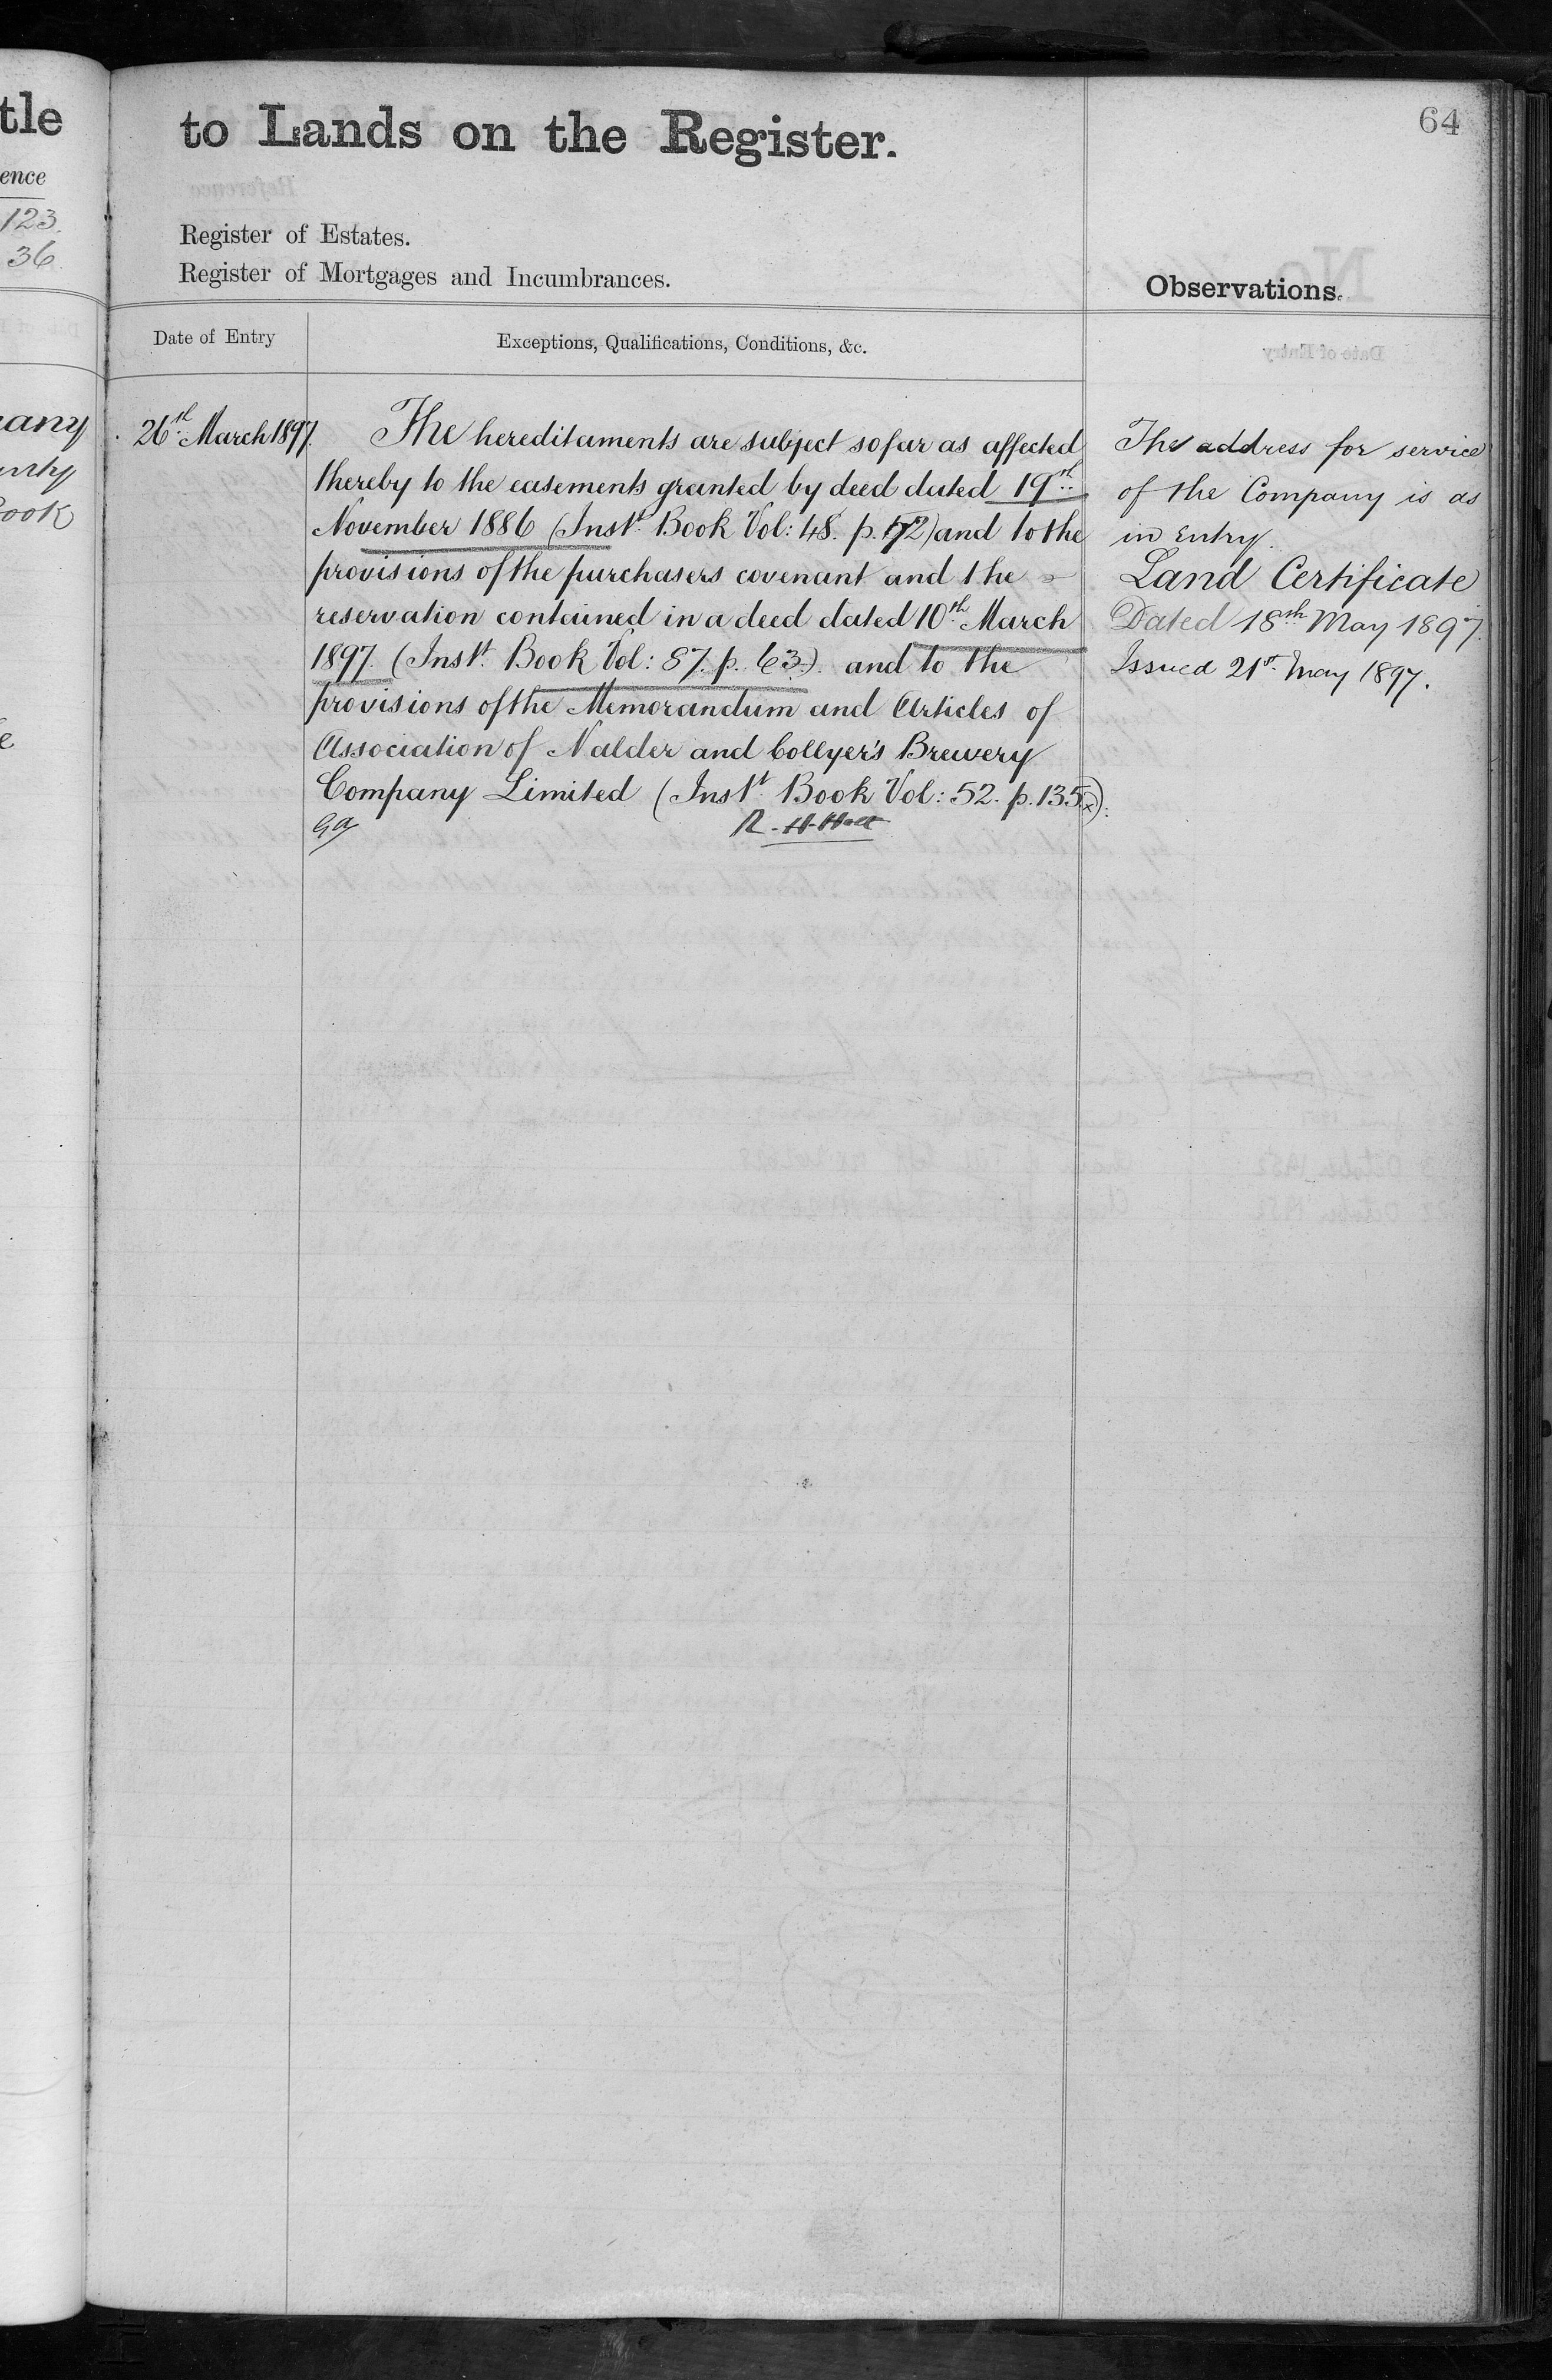 tle
ence
123.
36.
to Lands on the Register.
64
Register of Estates.
Register of Mortgages and Incumbrances.
Observations.
Date of Entry
Exceptions, Qualifications, Conditions, &c.
26th March 1897.
The hereditaments are subject so far as affected
thereby to the easements granted by deed dated 19th
November 1886 (Inst. Book Vol: 48. p. 172) and to the
provisions of the purchasers covenant and the
reservation contained in a deed dated 10th March
1897. (Inst. Book Vol: 87. p. 63.) and to the
provisions of the Memorandum and Articles of
Association of Nalder and Collyer's Brewery
Company Limited (Inst. Book Vol: 52. p. 135)
The address for service
of the Company is as
in Entry.
Land Certificate
Dated 18th May 1897.
Issued 21st May 1897.